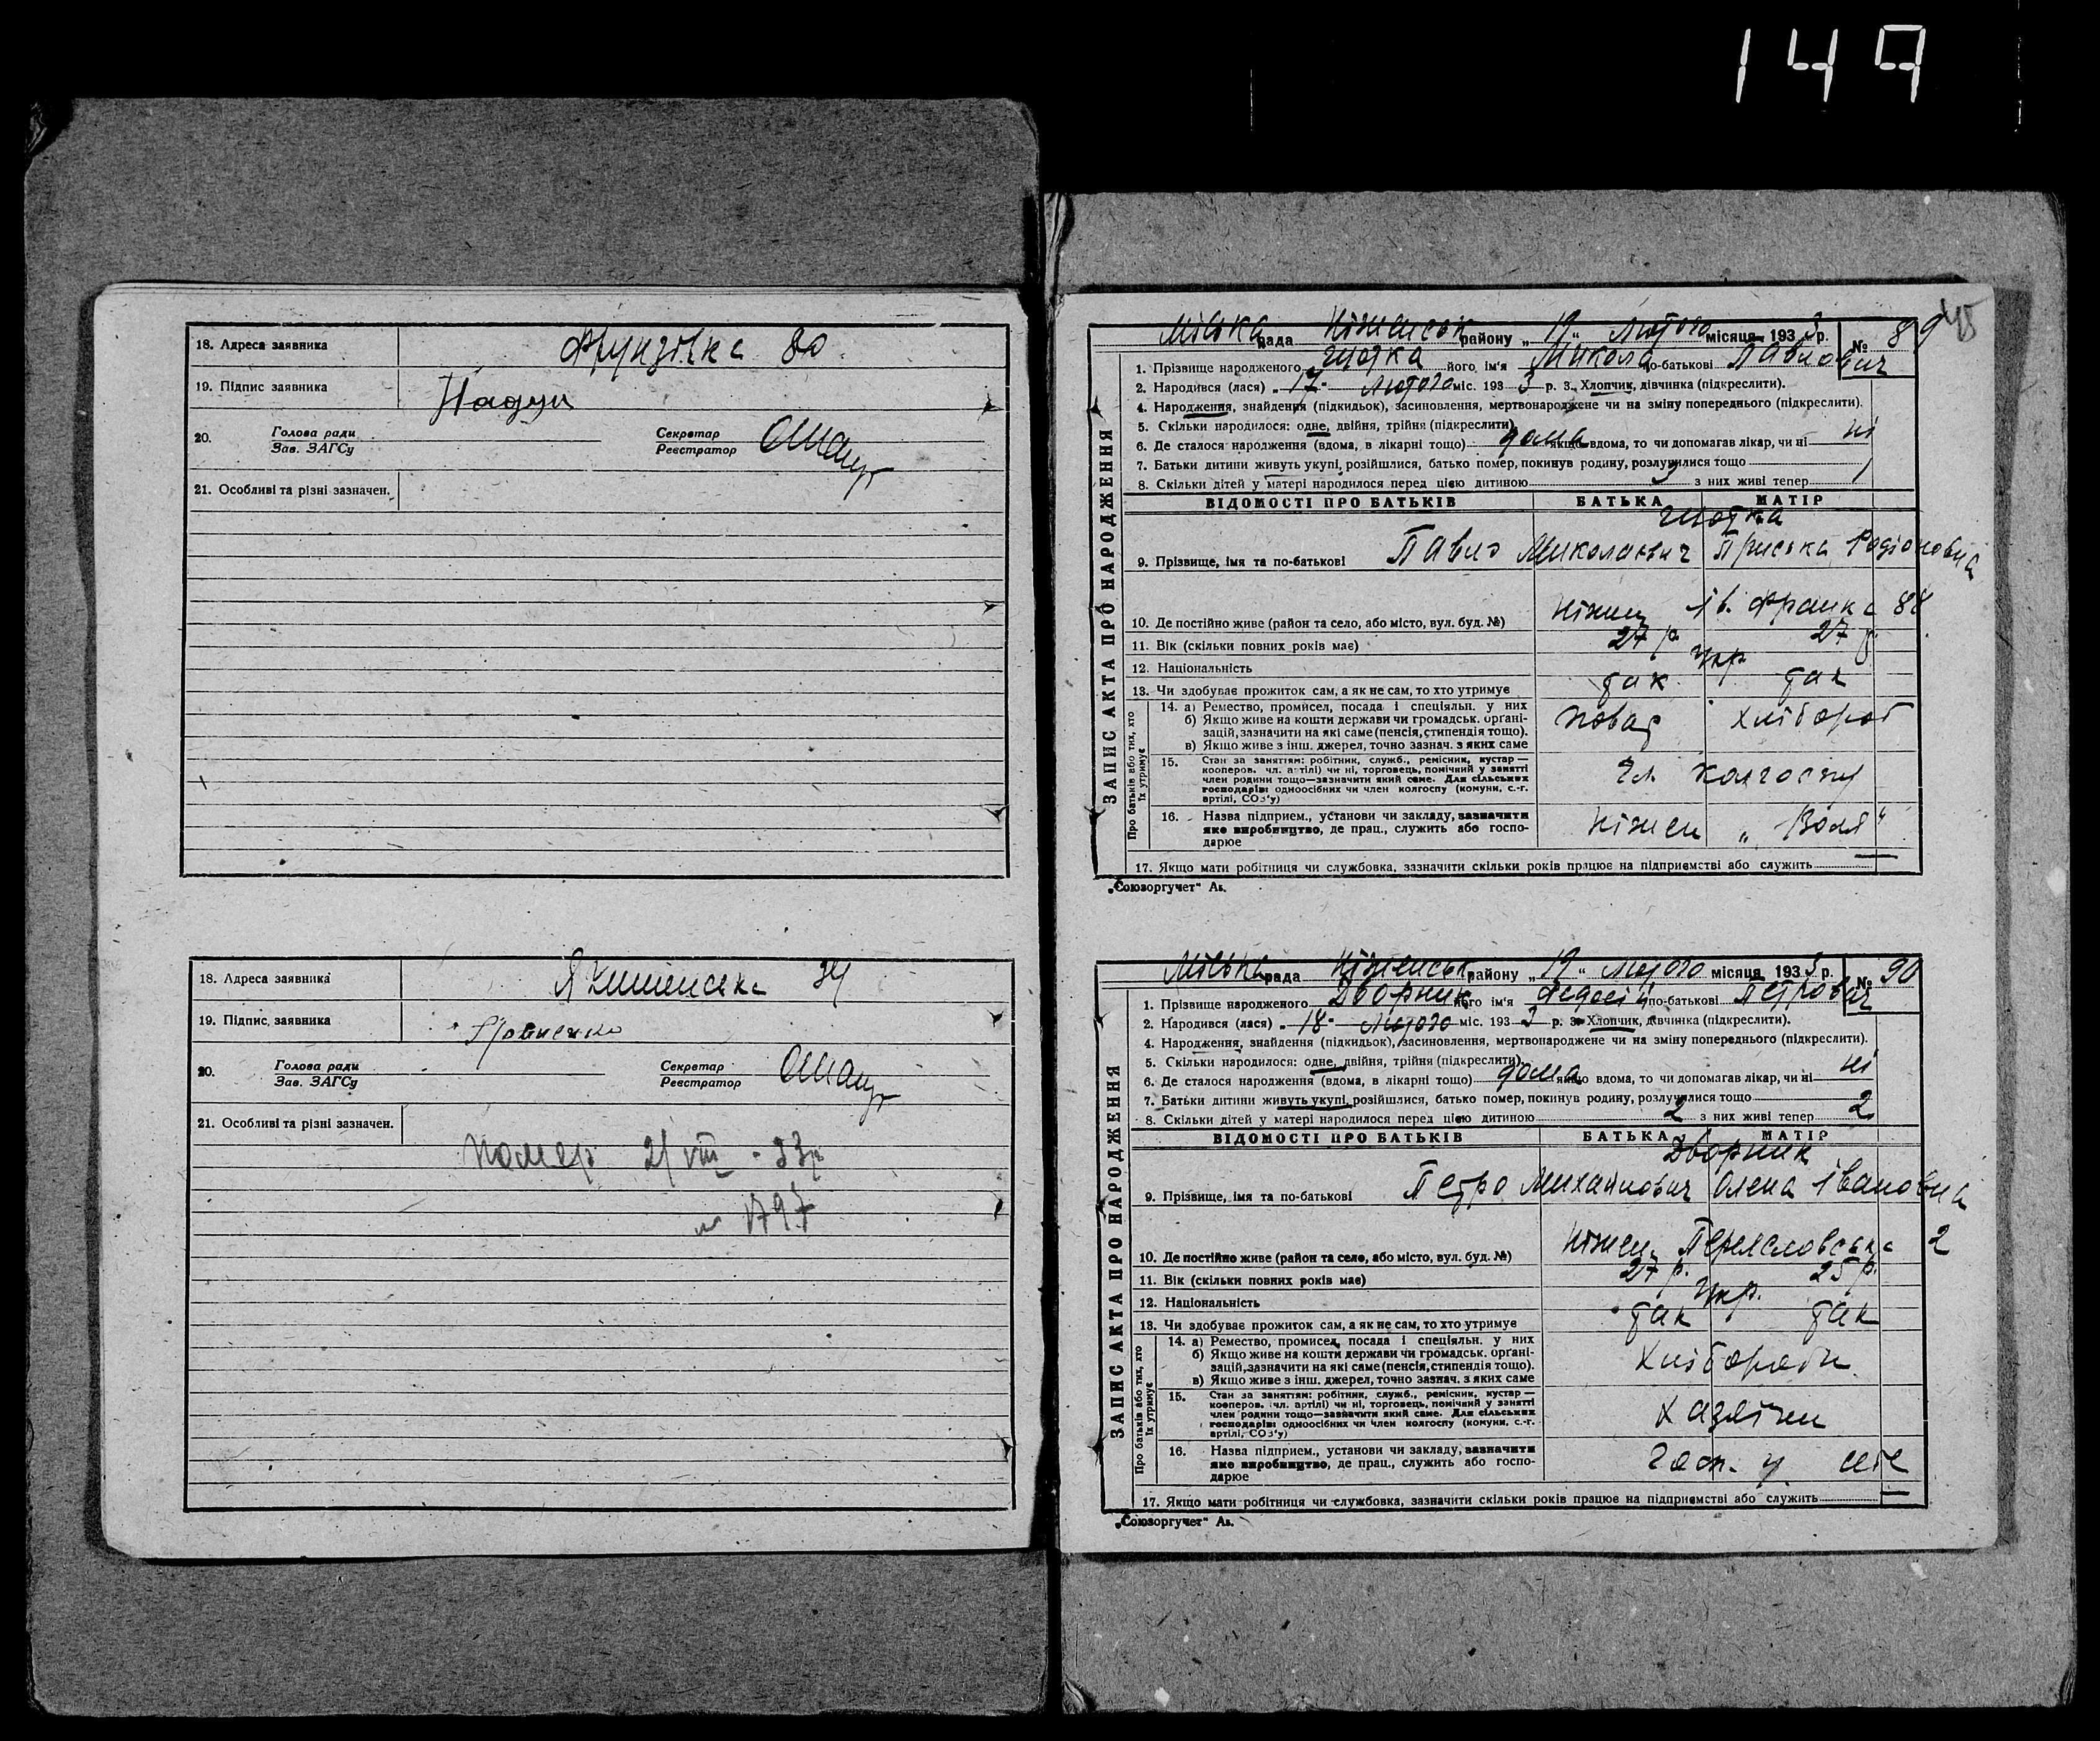 149
18. Адреса заявника Фрунзівка 80
19. Підпис заявника
20. Голова ради Секретар
Зав. ЗАГСу Реєстратор
21. Особливі та різні зазначен.
18. Адреса заявника 34
19. Підпис заявника
20. Голова ради Секретар
Зав. ЗАГСу Реєстратор
21. Особливі та різні зазначен.
Помер 21 VIII - 33р
№ 1797
45
ЗАПИС АКТА ПРО НАРОДЖЕННЯ
Міська рада Ніженськ району „19“ Лютого місяця 1933 р. № 89
1. Прізвище народженого його ім'я Микола по-батькові Павлович
2. Народився (лася) „17“ Лютого міс. 1933 р. 3. Хлопчик, дівчинка (підкреслити).
4. Народження, знайдення (підкидьок), засиновлення, мертвонароджене чи на зміну попереднього (підкреслити).
5. Скільки народилося: одне, двійня, трійня (підкреслити)
6. Де сталося народження (вдома, в лікарні тощо) дома якщо вдома, то чи допомагав лікар, чи ні ні
7. Батьки дитини живуть укупі, розійшлися, батько помер, покинув родину, розлучилися тощо
8. Скільки дітей у матері народилося перед цією дитиною 3 з них живі тепер 1
ВІДОМОСТІ ПРО БАТЬКІВ БАТЬКА МАТІР
9. Прізвище, імя та по-батькові Павло Миколаєвич Приська Родіоновна
10. Де постійно живе (район та село, або місто, вул. буд. №) Ніжен Ів. Франка 88
11. Вік (скільки повних років має) 27 р. 27 р.
12. Національність Укр.
13. Чи здобуває прожиток сам, а як не сам, то хто утримує так так
Про батьків або тих, хто їх утримує
14. а) Ремество, промисел, посада і спеціяльн. у них Повар Хлібороб
б) Якщо живе на кошти держави чи громадськ. органі-
зацій, зазначити на які саме (пенсія, стипендія тощо).
в) Якщо живе з інш. джерел, точно зазнач. з яких саме
15. Стан за заняттям: робітник, служб., ремісник, кустар— Чл. колгоспу
кооперов. чл. артілі) чи ні, торговець, помічний у занятті
член родини тощо—зазначити який саме. Для сільських
господарів: одноосібних чи член колгоспу (комуни, с.-г.
артілі, СОЗ'у)
16. Назва підприєм., установи чи закладу, зазначити Ніжен „Воля“
яке виробництво, де прац., служить або госпо-
дарює
17. Якщо мати робітниця чи службовка, зазначити скільки років працює на підприємстві або служить —
„Союзоргучет“ Ах.
ЗАПИС АКТА ПРО НАРОДЖЕННЯ
Міська рада Ніженськ району „19“ Лютого місяця 1933 р. № 90
1. Прізвище народженого Дворник його ім'я Федосій по-батькові Петрович
2. Народився (лася) „18“ Лютого міс. 1933 р. 3. Хлопчик, дівчинка (підкреслити).
4. Народження, знайдення (підкидьок), засиновлення, мертвонароджене чи на зміну попереднього (підкреслити).
5. Скільки народилося: одне, двійня, трійня (підкреслити)
6. Де сталося народження (вдома, в лікарні тощо) дома якщо вдома, то чи допомагав лікар, чи ні ні
7. Батьки дитини живуть укупі, розійшлися, батько помер, покинув родину, розлучилися тощо
8. Скільки дітей у матері народилося перед цією дитиною 2 з них живі тепер 2
ВІДОМОСТІ ПРО БАТЬКІВ БАТЬКА МАТІР
Дворник
9. Прізвище, імя та по-батькові Петро Михайлович Олена Івановна
10. Де постійно живе (район та село, або місто, вул. буд. №) Ніжен Переясловська 2
11. Вік (скільки повних років має) 27 р. 25 р.
12. Національність Укр.
13. Чи здобуває прожиток сам, а як не сам, то хто утримує так так
Про батьків або тих, хто їх утримує
14. а) Ремество, промисел, посада і спеціяльн. у них Хлібороби
б) Якщо живе на кошти держави чи громадськ. органі-
зацій, зазначити на які саме (пенсія, стипендія тощо).
в) Якщо живе з інш. джерел, точно зазнач. з яких саме
15. Стан за заняттям: робітник, служб., ремісник, кустар— Хазяїни
кооперов. чл. артілі) чи ні, торговець, помічний у занятті
член родини тощо—зазначити який саме. Для сільських
господарів: одноосібних чи член колгоспу (комуни, с.-г.
артілі, СОЗ'у)
16. Назва підприєм., установи чи закладу, зазначити Госп. у селе
яке виробництво, де прац., служить або госпо-
дарює
17. Якщо мати робітниця чи службовка, зазначити скільки років працює на підприємстві або служить —
„Союзоргучет“ Ах.